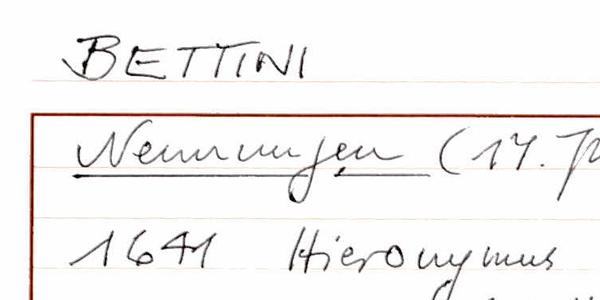 BETTINI
Nennungen (17.
1641 Hieronymus